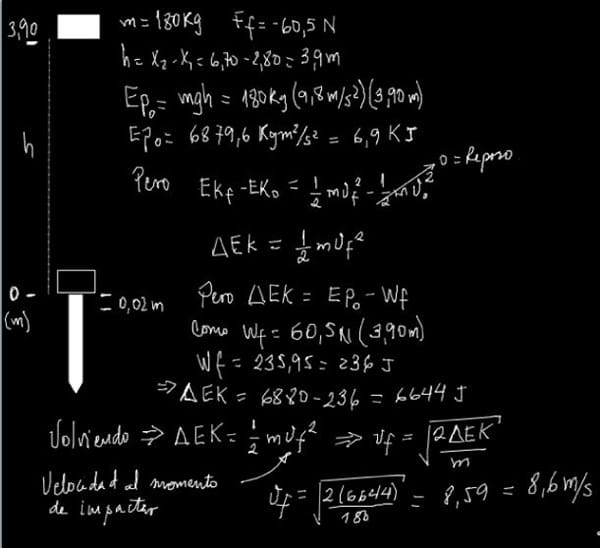 3,90
m = 180Kg   Ff = -60,5 N
h = X2 - X1 = 6,70 - 2,80 = 3,9m
h
Ep₀ = mgh = 180Kg (9,8 m/s²)(3,90m)
Ep₀ = 6879,6 Kgm²/s² = 6,9 KJ
Pero EKf - EK₀ = 1/2 mυf² - 1/2 mυ₀² 0 = Reposo
ΔEK = 1/2 mυf²
0
(m)
0,02 m
Pero ΔEK = Ep₀ - Wf
Como Wf = 60,5N (3,90m)
Wf = 235,95 = 236 J
⇒ ΔEK = 6880 - 236 = 6644 J
Volviendo ⇒ ΔEK = 1/2 mυf² ⇒ υf = √(2ΔEK/m)
Velocidad al momento
de impactar
υf = √(2(6644)/180) = 8,59 = 8,6 m/s